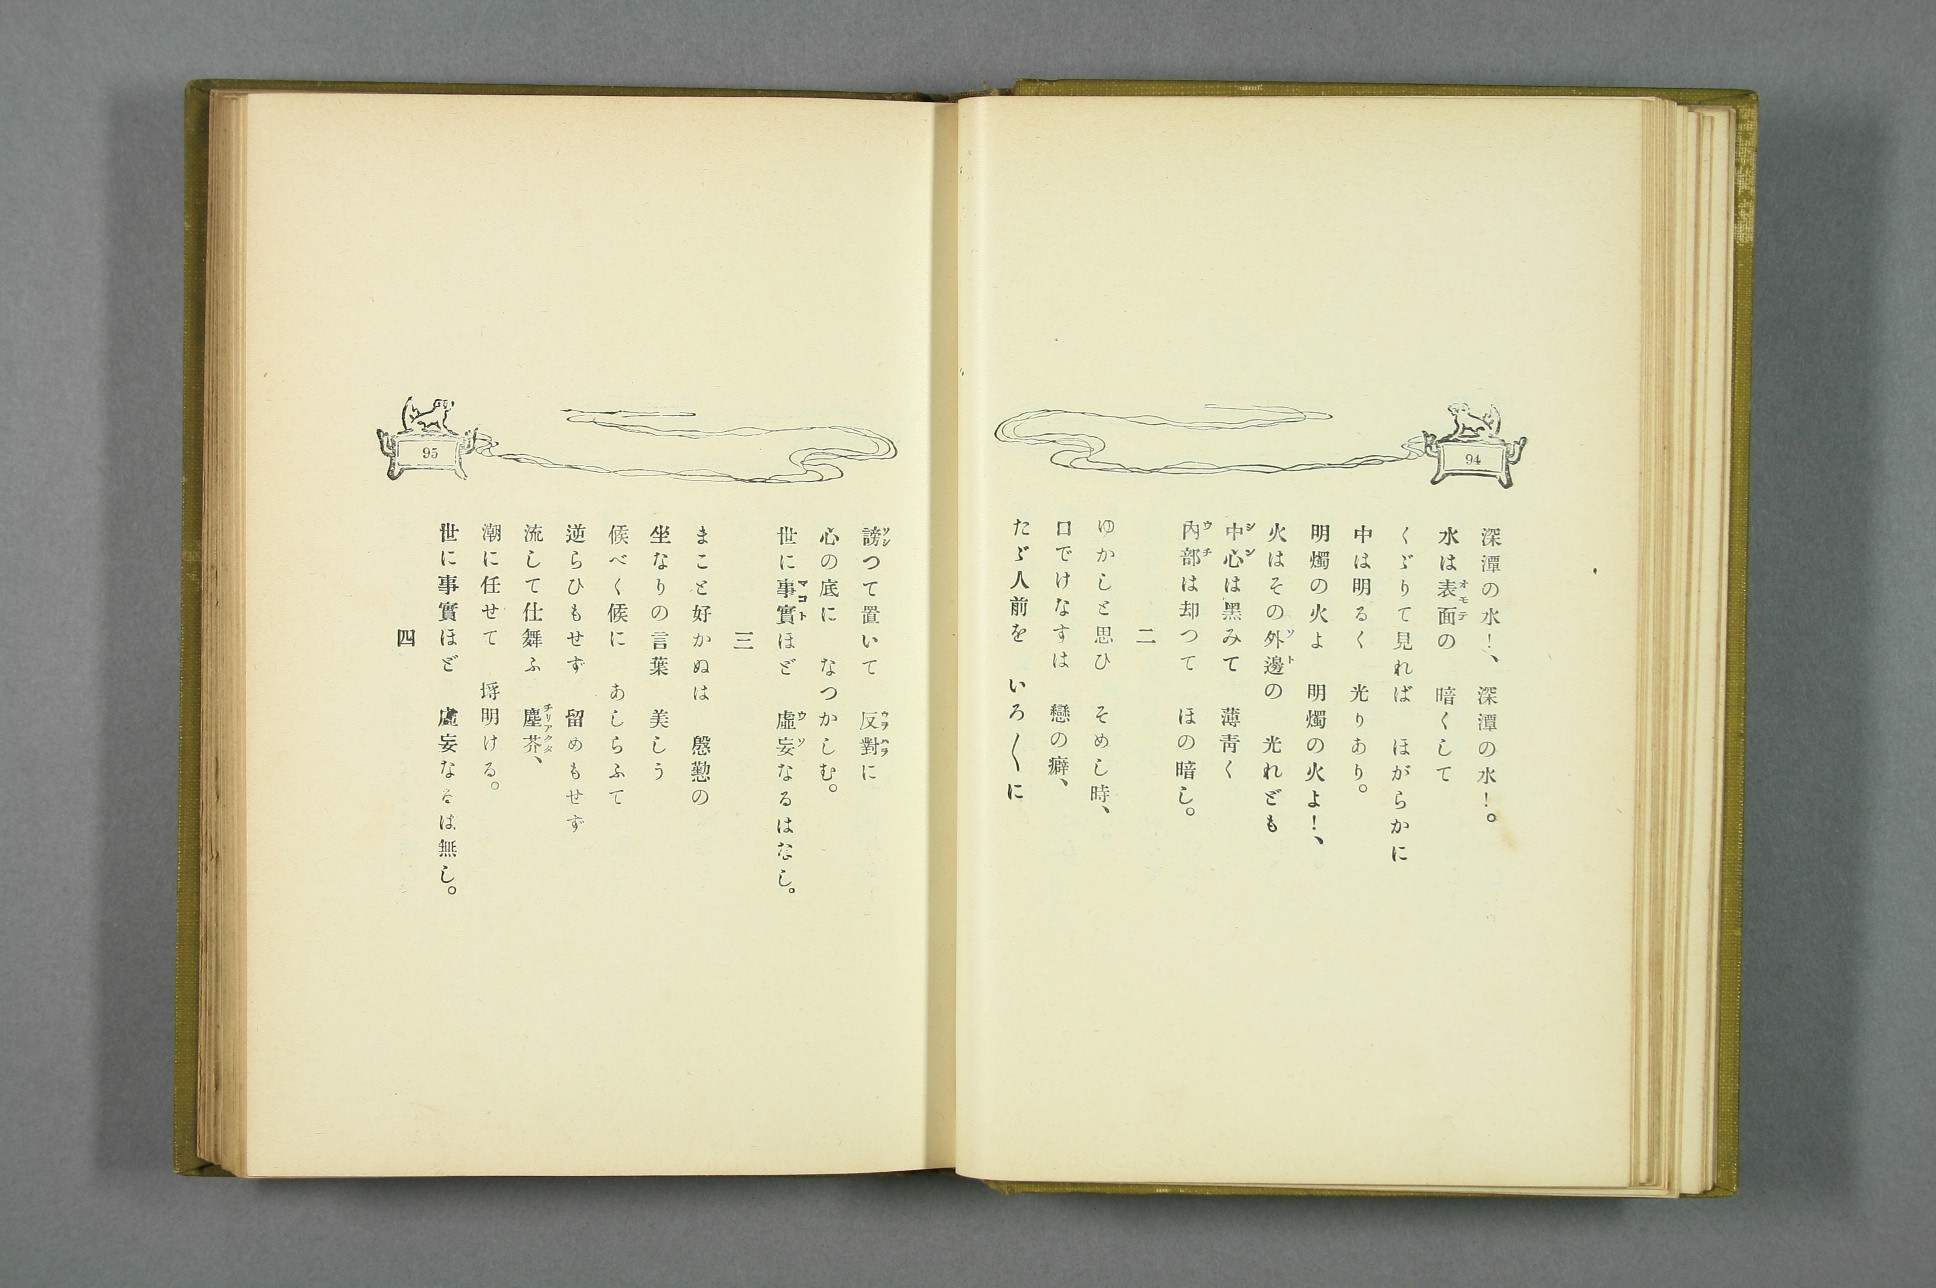 94
深潭の水！、　深潭の水！。
水は表面の　暗くして
くゞりて見れば　ほがらかに
中は明るく　光りあり。
明燭の火よ　明燭の火よ！、
火はその外邊の　光れども
中心は黑みて　薄靑く
內部は却つて　ほの暗し。
二
ゆかしと思ひ　そめし時、
口でけなすは　戀の癖、
たゞ人前を　いろ〱に
95
謗つて置いて　反對に
心の底に　なつかしむ。
世に事實ほど　虛妄なるはなし。
三
まこと好かぬは　慇懃の
坐なりの言葉　美しう
候べく候に　あしらふて
逆らひもせず　留めもせず
流して仕舞ふ　塵芥、
潮に任せて　埓明ける。
世に事實ほど　虛妄なるは無し。
四